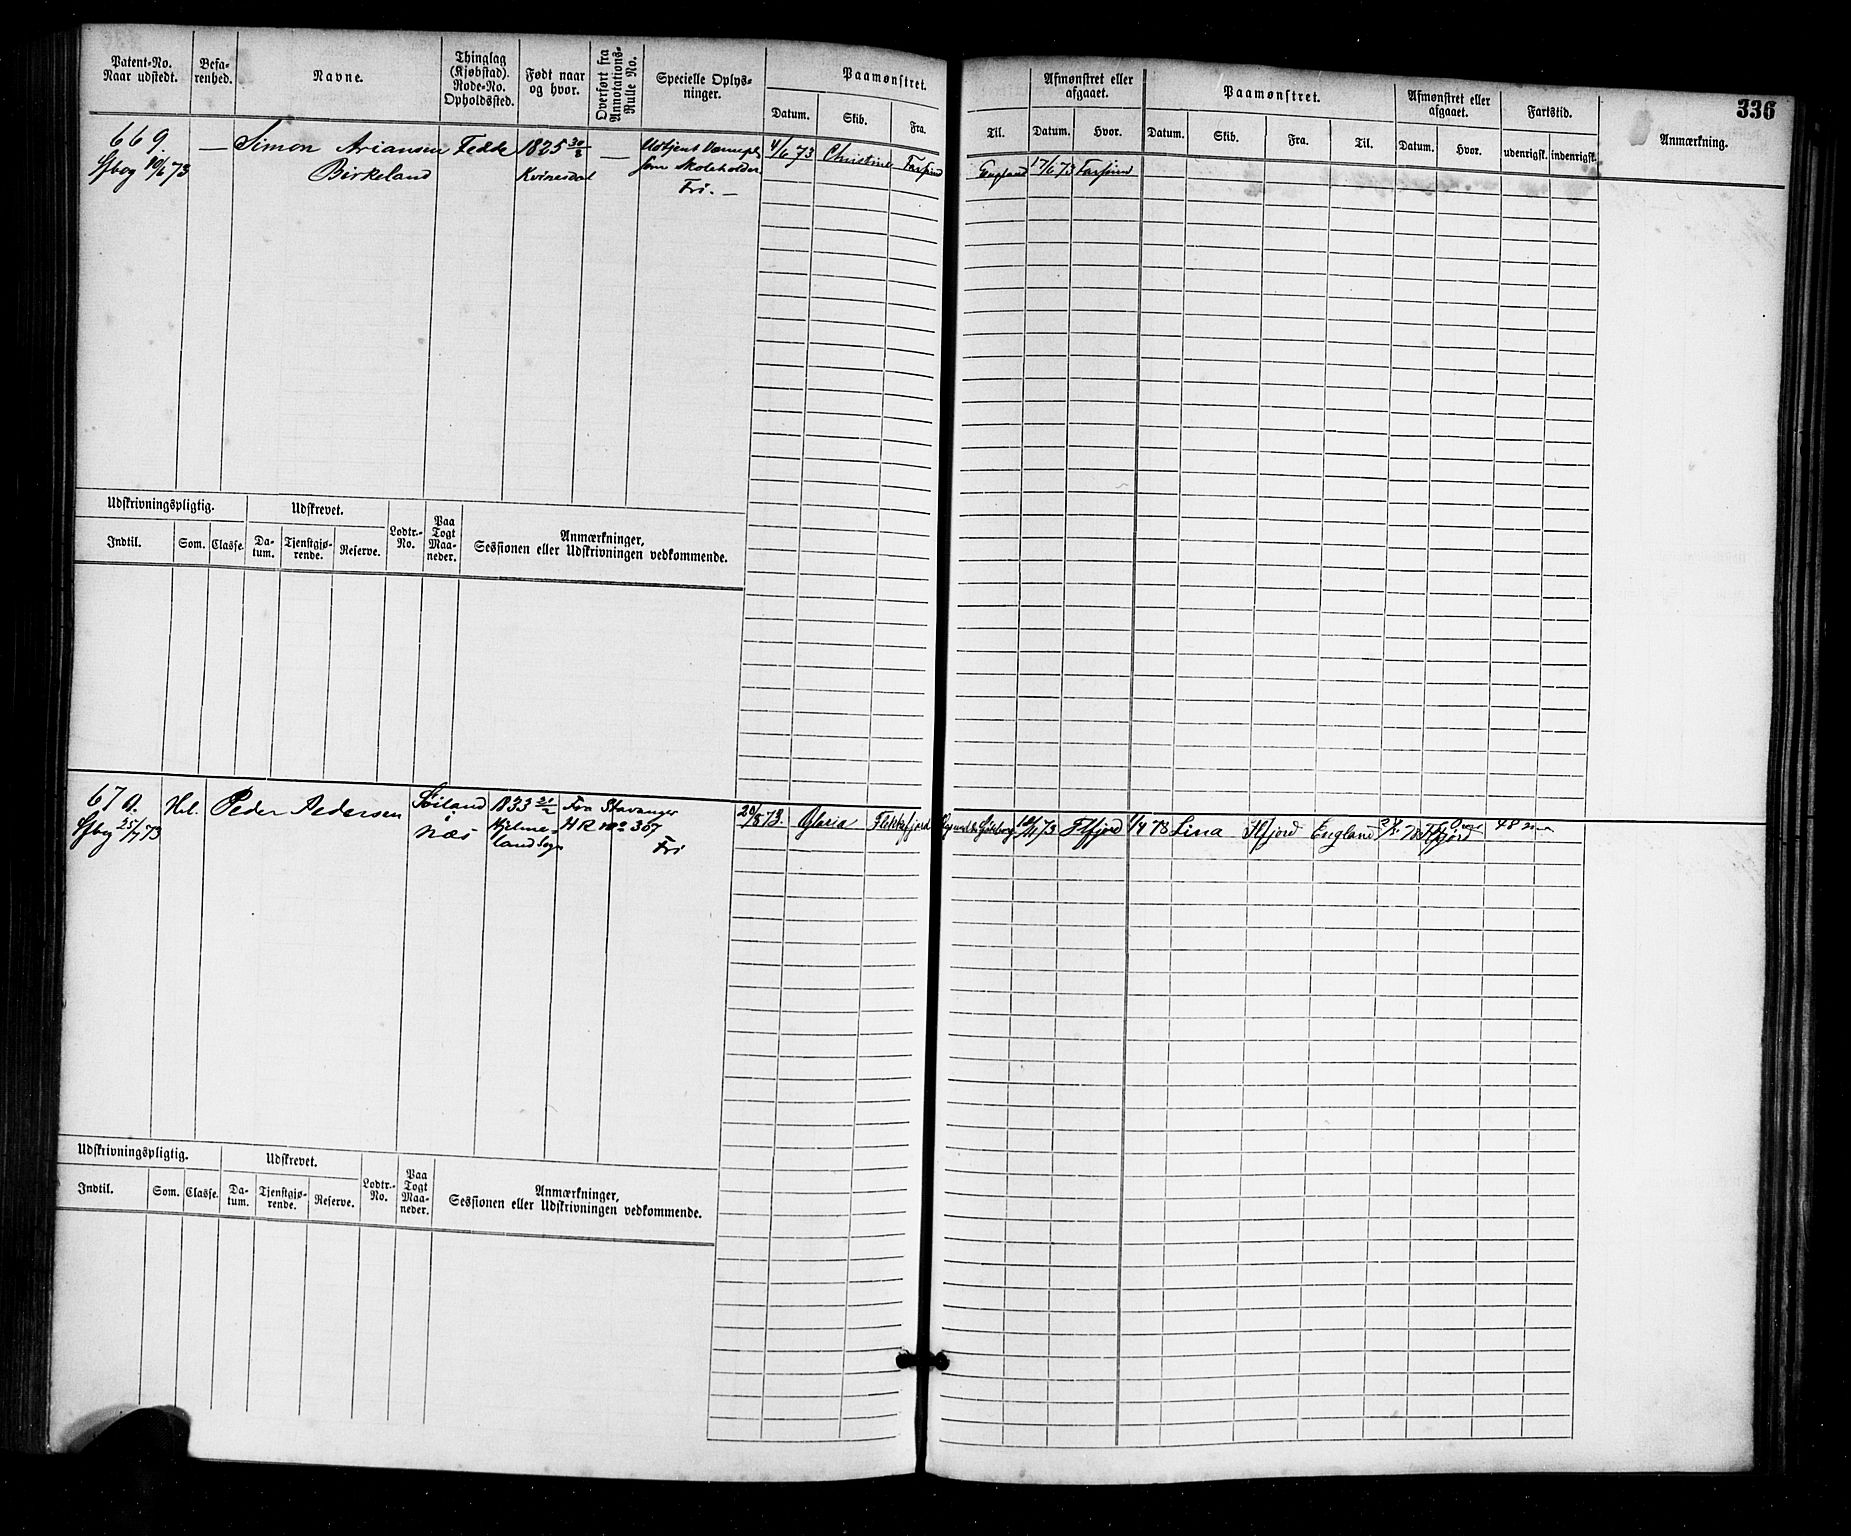 336
Patent-No. Naar udstedt.
Befarenhed.
Navne.
Thinglag (Kjøbstad). Rode-No. Opholdssted.
Født naar og hvor.
Overført fra Annotations-Rulle No.
Specielle Oplysninger.
Paamønstret.
Datum. Skib. Fra.
Til.
Afmønstret eller afgaaet.
Datum. Hvor.
Paamønstret.
Datum. Skib. Fra. Til.
Afmønstret eller afgaaet.
Datum. Hvor.
Fartstid.
udenrigsk. indenrigsk.
Anmærkning.
669. — Simon Ariansen Fedde 1825 30/3 — Udtjent Værnepl 4/6 73 Christine Farsund England 17/6 73 Farsund
Sfbog 10/6 73 Birkeland Kvinesdal som Skoleholder
Fri. —
Udskrivningspligtig.
Indtil. Som. Classe.
Udskrevet.
Datum. Tjenstgjørende. Reserve.
Lodtr.-No.
Paa Togt Maaneder.
Anmærkninger,
Sessionen eller Udskrivningen vedkommende.
670. Hel. Peder Pedersen Søiland 1833 21/2 Fra Stavanger 20/8 73. Gloria Flekkefjord Göteborg 73 Flfjord 1/4 78 Lina Flfjord England Flfjord 48
Sfbog 25/7 73 Næs Hjelmeland Sogn HR no 307
Fri
Udskrivningspligtig.
Indtil. Som. Classe.
Udskrevet.
Datum. Tjenstgjørende. Reserve.
Lodtr.-No.
Paa Togt Maaneder.
Anmærkninger,
Sessionen eller Udskrivningen vedkommende.